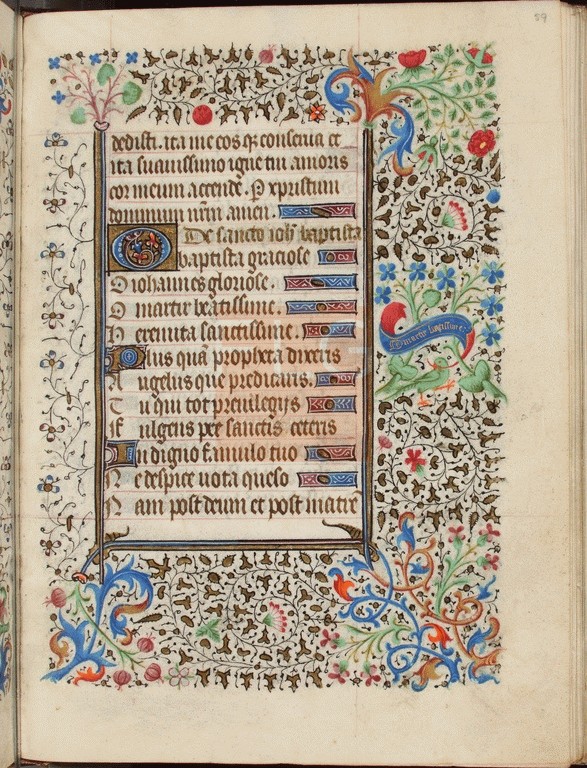 59
dedisti. ita me eos qꝫ conserua et
ita suauissimo igne tui amoris
cor meum accende. P xpristum
dominum nrm amen.
De sancto ioh baptista
O baptista graciose
O iohannes gloriose.
O martir beatissime.
H eremita sanctissime.
Plus quã propheta diceris
Angelus que predicaris.
Tu qui tot preuilegijs
Fulgens pre sanctis ceteris
Indigno famulo tuo
Ne despice uota queso
Nam post deum et post matrẽ
O martir beatissime